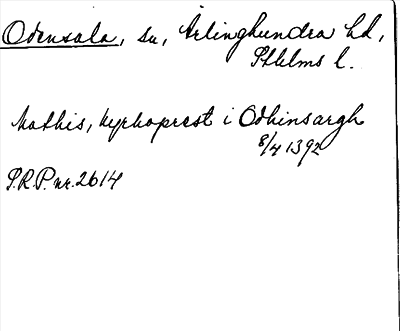 Odensala, sn, Ärlinghundra hd,
Sthlms l.
Mathis, kyrkoprest i Odhinsargh
8/4 1392
S.R.P. nr. 2614